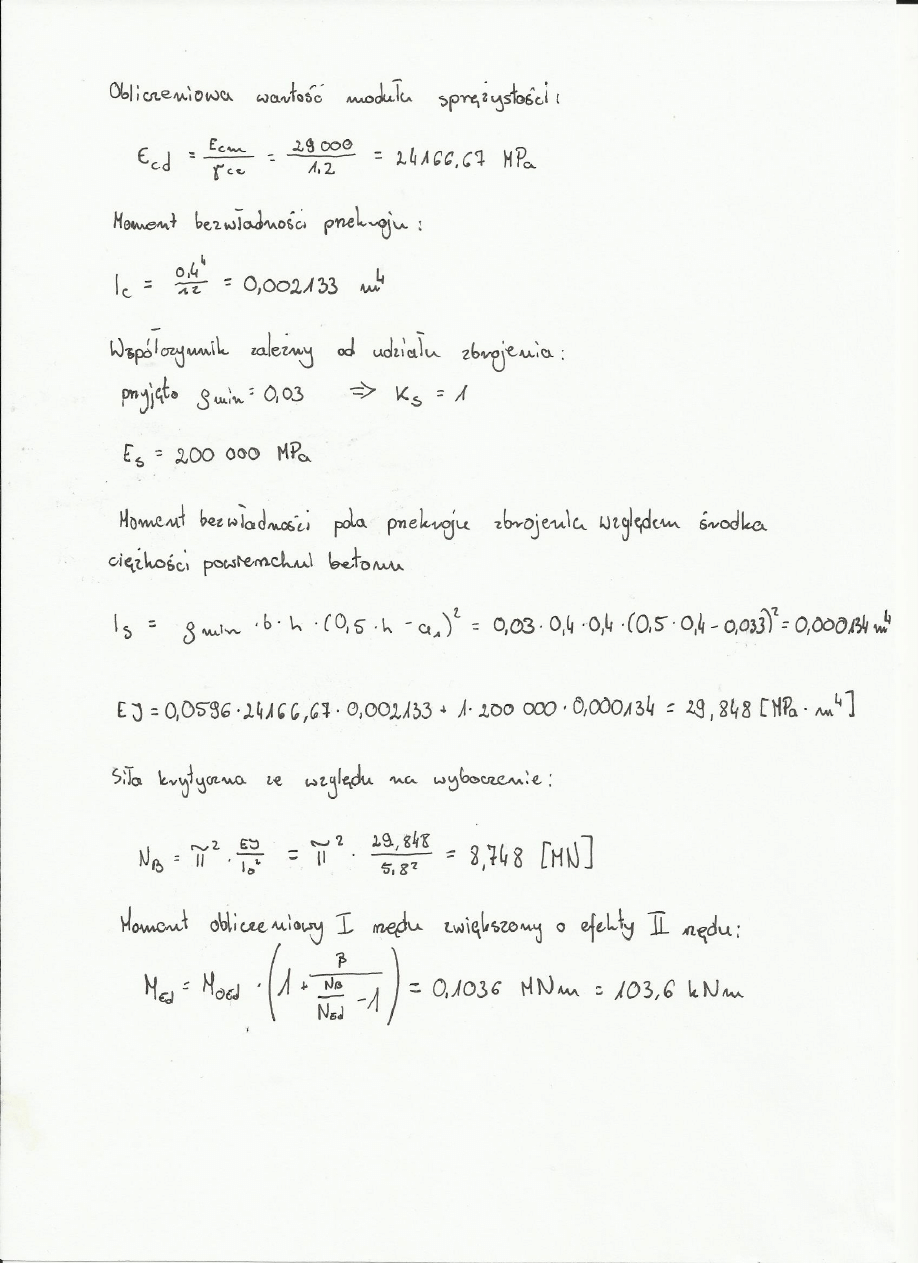 Obliczeniowa wartość modułu sprężystości:
E_cd = E_cm / γ_ce = 29 000 / 1,2 = 24166,67 MPa
Moment bezwładności przekroju:
I_c = 0,4⁴ / 12 = 0,002133 m⁴
Współczynnik zależny od udziału zbrojenia:
przyjęto ρ min = 0,03 ⇒ K_s = 1
E_s = 200 000 MPa
Moment bezwładności pola przekroju zbrojenia względem środka
ciężkości powierzchni betonu
I_s = ρ min · b · h · (0,5 · h - a₁)² = 0,03 · 0,4 · 0,4 · (0,5 · 0,4 - 0,033)² = 0,000134 m⁴
EJ = 0,0596 · 24166,67 · 0,002133 + 1 · 200 000 · 0,000134 = 29,848 [MPa · m⁴]
Siła krytyczna ze względu na wyboczenie:
N_B = π² · EJ / l₀² = π² · 29,848 / 5,8² = 8,748 [MN]
Moment obliczeniowy I rzędu zwiększony o efekty II rzędu:
M_Ed = M_0Ed · (1 + β / (N_B / N_Ed - 1)) = 0,1036 MNm = 103,6 kNm